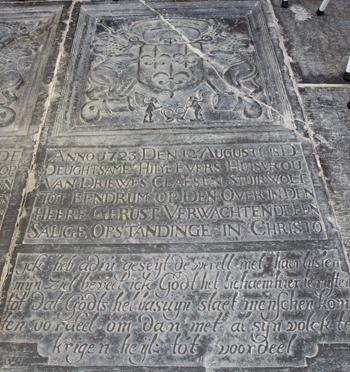 ANNO 1723 DEN 12 AUGUSTUS IS D
DEUGHTSAME HILLE EVERS HUISVROU
VAN DRIEWES CLAESEN STUIRWOLT
TOT EENDRUM OP IDEN OVER IN DEN
HEERE GERUST VERWACHTENDE EEN
SALIGE OPSTANDINGE IN CHRISTO
ick heb adiu geseyt de werelt met haer listen
mijn ziel beveel ick Godt het lichaem hier te
tijd dat Godts hel basuyn slaet menschen kom
ten vordeel om dan met al syn volck te
krigen heyls tot voordeel